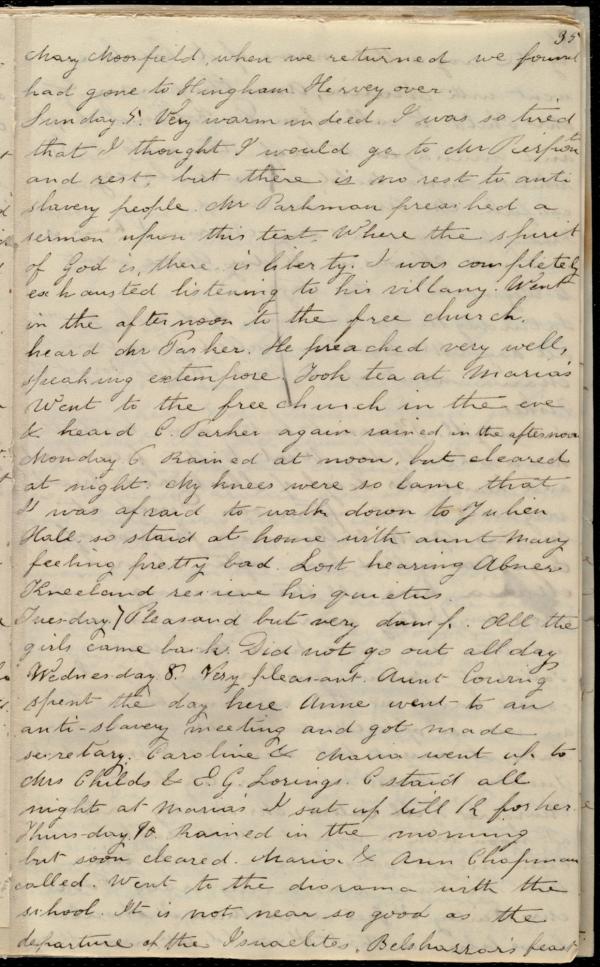 35
Mary Moorfield, when we returned we found
had gone to Hingham Hervey over.
Sunday 5. Very warm indeed. I was so tired
that I thought I would go to Mr Pierpont
and rest, but there is no rest to anti
slavery people. Mr Parkman preached a
sermon upon this text. Where the spirit
of God is, there is liberty. I was completely
exhausted listening to his villany. Went
in the afternoon to the free church.
heard Mr Parker. He preached very well,
speaking extempore. Took tea at Maria's
Went to the free church in the eve
& heard C. Parker again rained in the afternoon
Monday 6 Rained at noon, but cleared
at night. My knees were so lame that
I was afraid to walk down to Julien
Hall. so staid at home with aunt Mary
feeling pretty bad. Lost hearing Abner
Kneeland recieve his quietus.
Tuesday 7 Pleasand but very damp. All the
girls came back. Did not go out all day
Wednesday 8. Very pleasant. Aunt Coving
spent the day here. Anne went to an
anti-slavery meeting and got made
secretary. Caroline & Maria went up to
Mrs Childs & E. G. Lorings. C staid all
night at Marias. I sat up till 12 for her.
Thursday, 9. Rained in the morning
but soon cleared. Maria & Ann Chapman
called. Went to the diorama with the
school. It is not near so good as the
departure of the Israelites. Belshazzar's feast